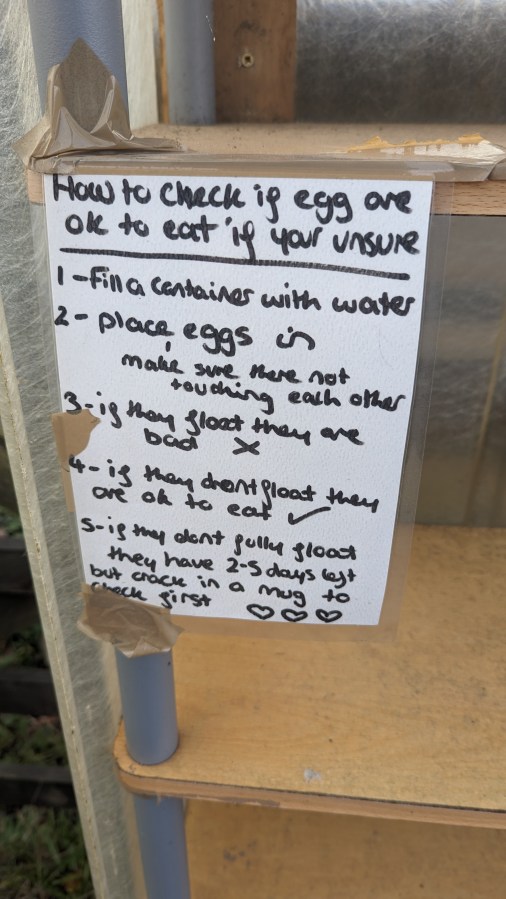 How to check if egg are
ok to eat if your unsure
1 - Fill a container with water
2 - place eggs in
make sure there not
touching each other
3 - if they float they are
bad X
4 - if they dront float they
are ok to eat ✓
5 - if they dont fully float
they have 2-5 days left
but crack in a mug to
check first ♡♡♡